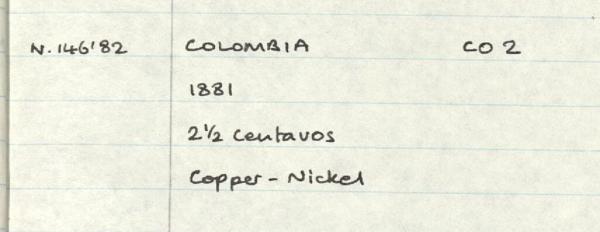 N.146'82 COLOMBIA CO 2
1881
2½ Centavos
Copper - Nickel